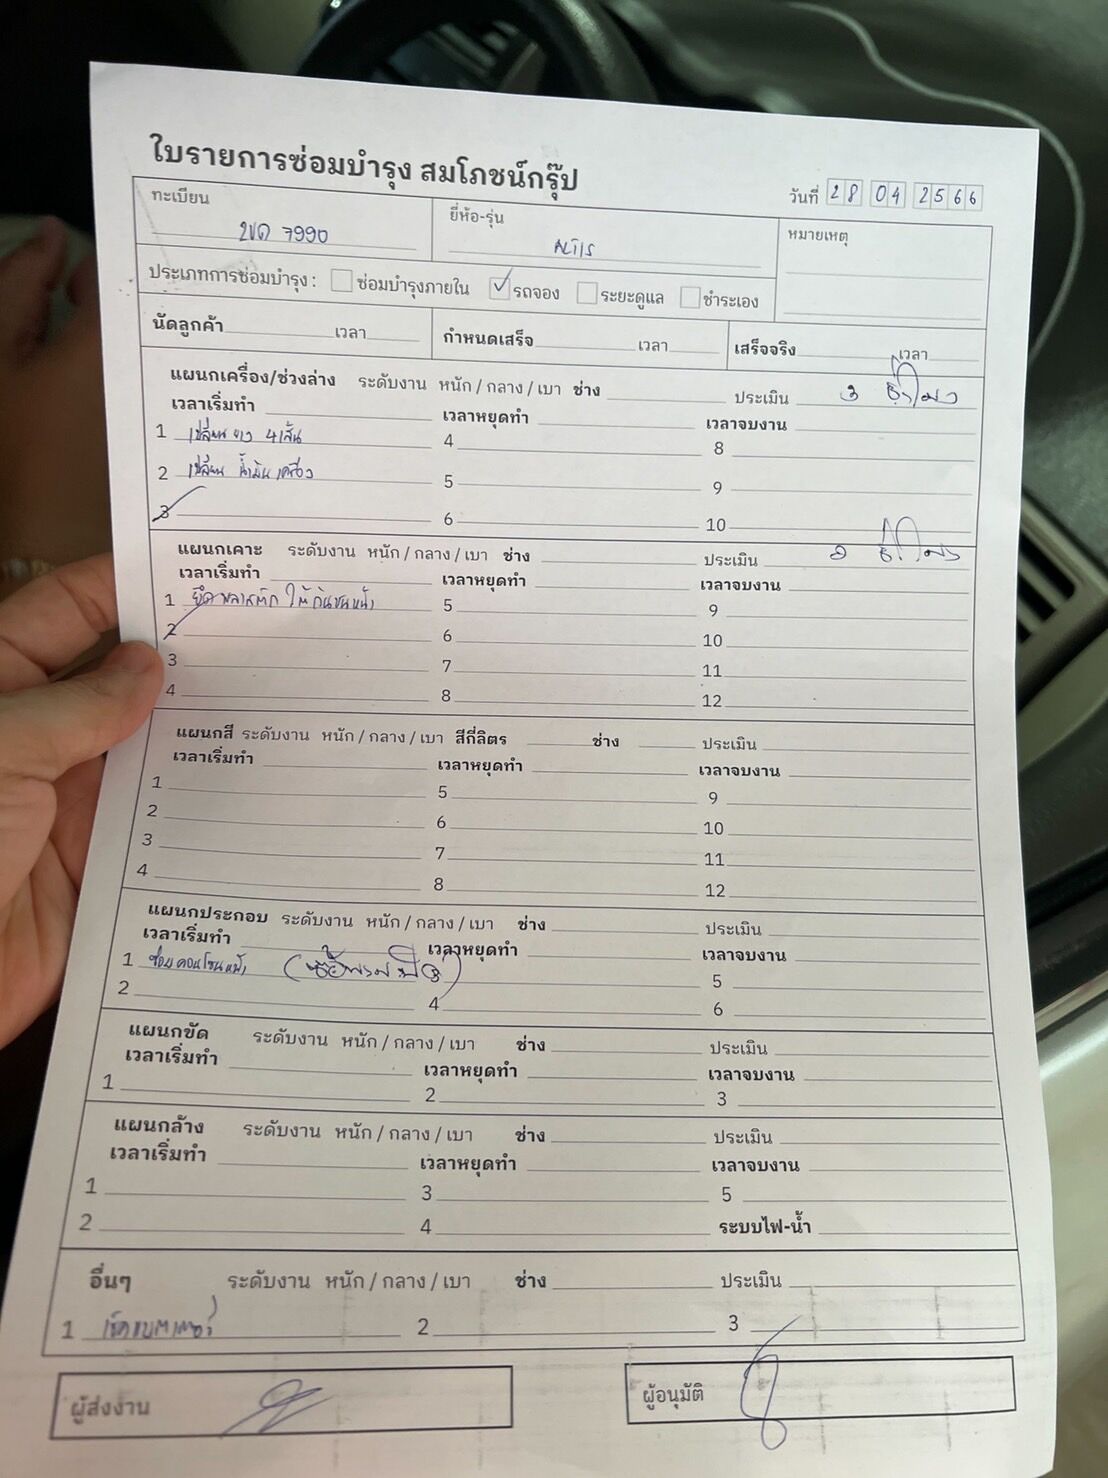 ใบรายการซ่อมบำรุง สมโภชน์กรุ๊ป
วันที่ 28 04 2566
ทะเบียน 2ขด 7990 ยี่ห้อ-รุ่น ALTIS หมายเหตุ
ประเภทการซ่อมบำรุง : ซ่อมบำรุงภายใน ✓ รถจอง ระยะดูแล ชำระเอง
นัดลูกค้า เวลา กำหนดเสร็จ เวลา เสร็จจริง เวลา
แผนกเครื่อง/ช่วงล่าง ระดับงาน หนัก / กลาง / เบา ช่าง ประเมิน 3 ชั่วโมง
เวลาเริ่มทำ เวลาหยุดทำ เวลาจบงาน
1 เปลี่ยน ยาง 4เส้น 4 8
2 เปลี่ยน น้ำมันเครื่อง 5 9
3 6 10
แผนกเคาะ ระดับงาน หนัก / กลาง / เบา ช่าง ประเมิน ชั่วโมง
เวลาเริ่มทำ เวลาหยุดทำ เวลาจบงาน
1 ยึดพลาสติก ใต้กันชนหน้า 5 9
2 6 10
3 7 11
4 8 12
แผนกสี ระดับงาน หนัก / กลาง / เบา สีกี่ลิตร ช่าง ประเมิน
เวลาเริ่มทำ เวลาหยุดทำ เวลาจบงาน
1 5 9
2 6 10
3 7 11
4 8 12
แผนกประกอบ ระดับงาน หนัก / กลาง / เบา ช่าง ประเมิน
เวลาเริ่มทำ เวลาหยุดทำ เวลาจบงาน
1 ซ่อมคอนโซนหน้า 3 5
2 4 6
แผนกขัด ระดับงาน หนัก / กลาง / เบา ช่าง ประเมิน
เวลาเริ่มทำ เวลาหยุดทำ เวลาจบงาน
1 2 3
แผนกล้าง ระดับงาน หนัก / กลาง / เบา ช่าง ประเมิน
เวลาเริ่มทำ เวลาหยุดทำ เวลาจบงาน
1 3 5
2 4 ระบบไฟ-น้ำ
อื่นๆ ระดับงาน หนัก / กลาง / เบา ช่าง ประเมิน
1 เช็คแบตเตอรี่ 2 3
ผู้ส่งงาน ผู้อนุมัติ